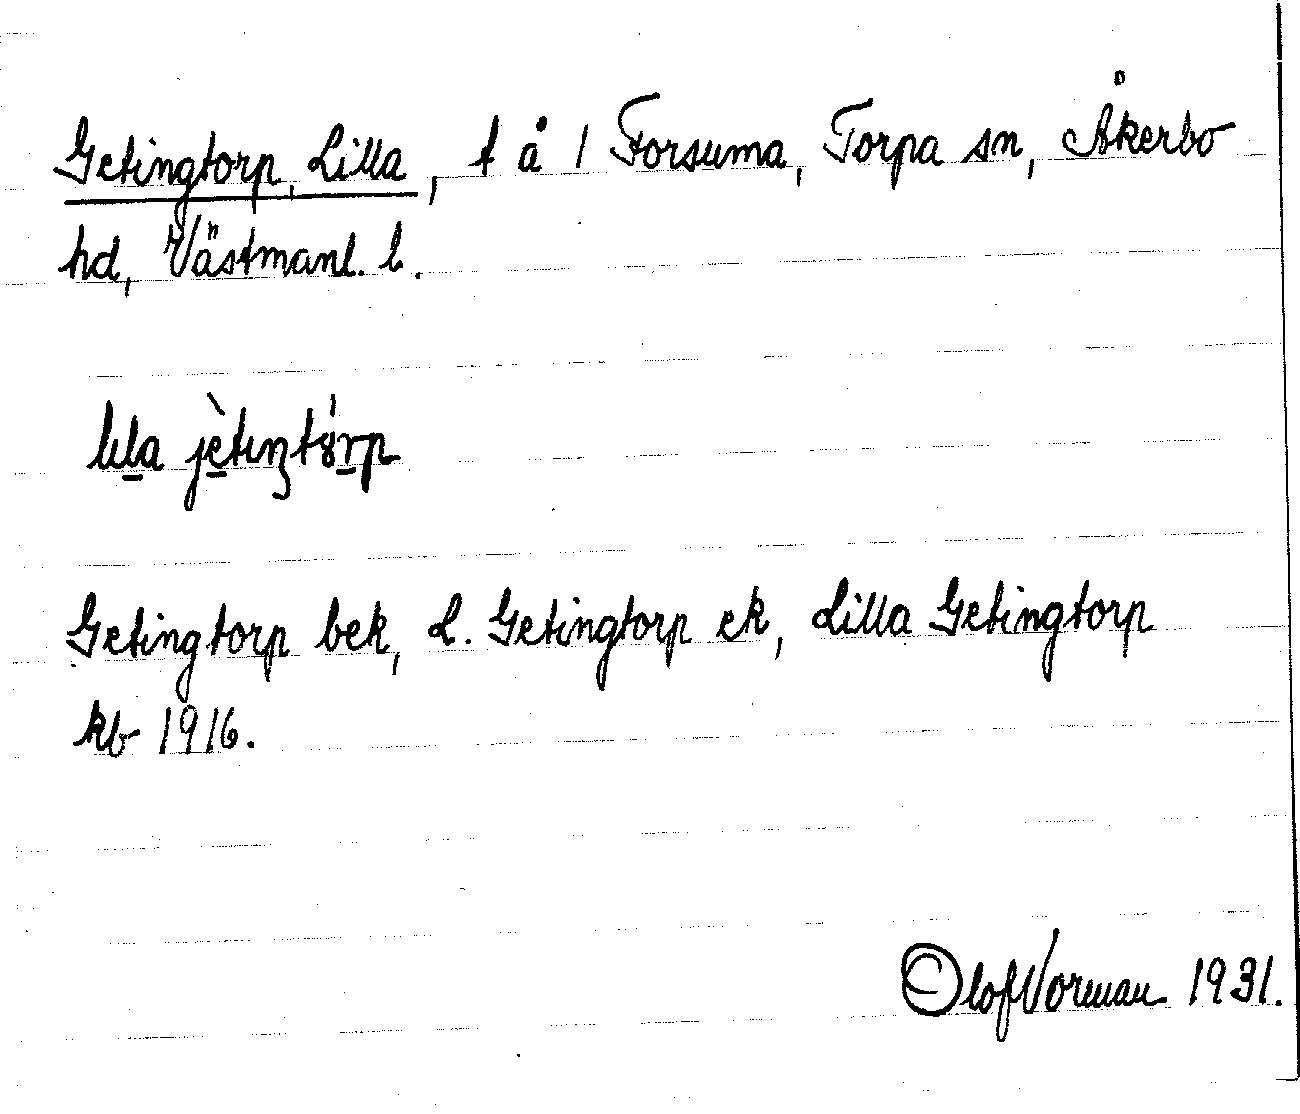 Getingtorp, Lilla, t å 1 Forsuma, Torpa sn, Åkerbo
hd, Västmanl. l.
lɩla jètɩŋtórp
Getingtorp bek, L. Getingtorp ek, Lilla Getingtorp
kb 1916.
Olof Vorman 1931.